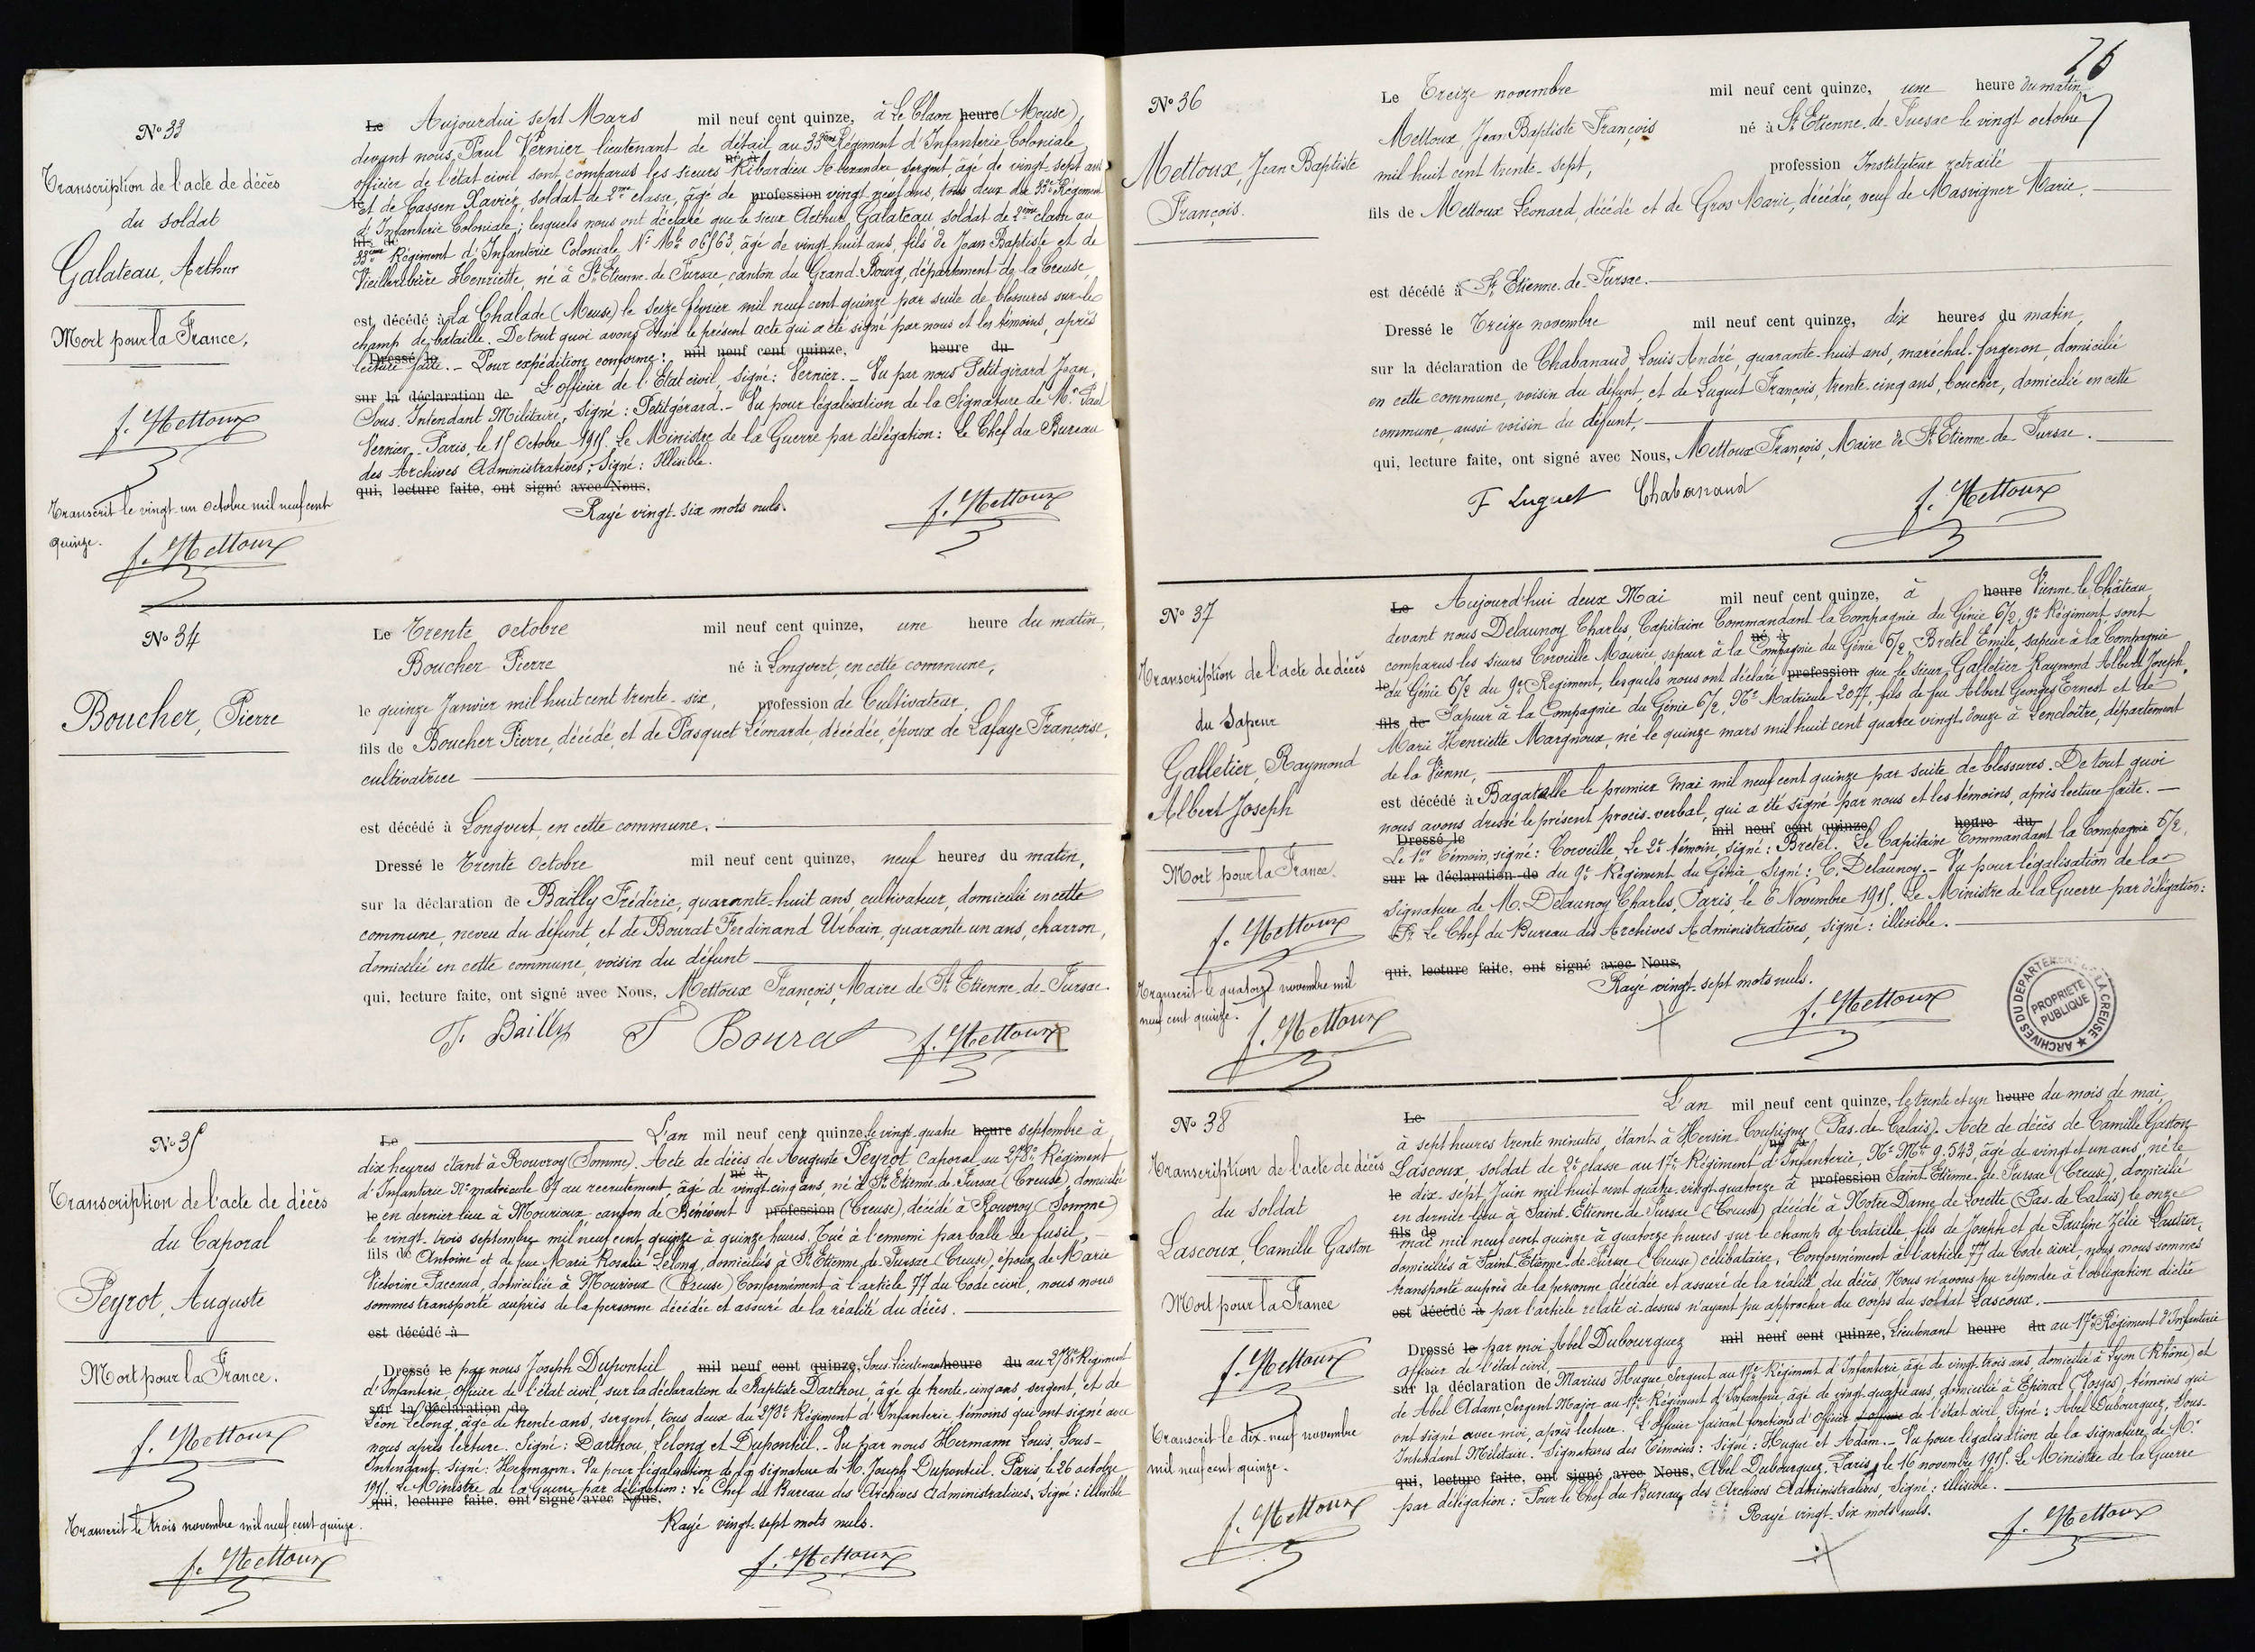 N° 33
Transcription de l'acte de décès
du soldat
Galateau, Arthur
Mort pour la France,
f. Mettoux
Transcrit le vingt-un octobre mil neuf cent
quinze.
f. Mettoux
Le Aujourdui sept Mars mil neuf cent quinze, à Le Claon heure (Meuse),
devant nous, Paul Vernier lieutenant de détail au 33ème Régiment d'Infanterie Coloniale
officier de l'état civil sont comparus les sieurs né à Ribardieu Alexandre sergent, âgé de vingt-sept ans
le et de Cassen Xavier, soldat de 2ème classe, âgé de profession vingt neuf ans, tous deux du 33e Régiment
d'Infanterie Coloniale; lesquels nous ont déclaré que le sieur Arthur Galateau soldat de 2ème classe au
fils de
33ème Régiment d'Infanterie Coloniale N° Mle 06563, âgé de vingt-huit ans, fils de Jean Baptiste et de
Vieilleribière Henriette, né à St Etienne-de-Fursac, canton du Grand-Bourg, département de la Creuse,
est décédé à La Chalade (Meuse) le seize février mil neuf cent quinze par suite de blessures sur le
champ de bataille. De tout quoi avons dressé le présent acte qui a été signé par nous et les témoins, après
Dressé le mil neuf cent quinze, heure du
lecture faite. - Pour expédition conforme:
sur la déclaration de L'officier de l'Etat civil, signé: Vernier. - Vu par nous Petitgirard Jean,
Sous-Intendant Militaire, signé: Petitgérard. - Vu pour légalisation de la signature de Mr Paul
Vernier - Paris, le 15 Octobre 1915. Le Ministre de la Guerre par délégation: Le Chef du Bureau
des Archives Administratives, signé: Illisible.
qui, lecture faite, ont signé avec Nous,
Rayé vingt-six mots nuls.
f. Mettoux
N° 34
Boucher, Pierre
Le Trente octobre mil neuf cent quinze, une heure du matin,
Boucher Pierre né à Longvert, en cette commune,
le quinze Janvier mil huit cent trente-six, profession de Cultivateur,
fils de Boucher Pierre, décédé, et de Pasquet Léonarde, décédée, époux de Lafaye Françoise,
cultivatrice
est décédé à Longvert, en cette commune.
Dressé le Trente Octobre mil neuf cent quinze, neuf heures du matin,
sur la déclaration de Bailly Frédéric, quarante-huit ans, cultivateur, domicilié en cette
commune, neveu du défunt, et de Bourat Ferdinand Urbain, quarante un ans, charron,
domicilié en cette commune, voisin du défunt
qui, lecture faite, ont signé avec Nous, Mettoux François, Maire de St Etienne-de-Fursac.
F. Bailly F Bourat f. Mettoux
N° 35
Transcription de l'acte de décès
du Caporal
Peyrot, Auguste
Mort pour la France.
f. Mettoux
Transcrit le trois novembre mil neuf cent quinze.
f. Mettoux
Le L'an mil neuf cent quinze, le vingt-quatre heure septembre à
dix heures étant à Rouvroy (Somme). Acte de décès de Auguste Peyrot Caporal au 278e Régiment
d'Infanterie N° matricule 67 au recrutement, âgé de né à vingt cinq ans, né à St Etienne-de-Fursac (Creuse), domicilié
le en dernier lieu à Mourioux canton de Bénévent profession (Creuse), décédé à Rouvroy (Somme)
le vingt-trois septembre mil neuf cent quinze à quinze heures. Tué à l'ennemi par balle de fusil,
fils de Antoine et de feue Marie Rosalie Lelong, domiciliés à St Etienne-de-Fursac (Creuse), époux de Marie
Victorine Paccaud, domiciliée à Mourioux (Creuse) Conformément à l'article 77 du Code civil, nous nous
sommes transporté auprès de la personne décédée et assuré de la réalité du décès.
est décédé à
Dressé le par nous Joseph Duponteil mil neuf cent quinze, Sous-lieutenant heure du au 278e Régiment
d'Infanterie, Officier de l'état civil, sur la déclaration de Baptiste Darthou, âgé de trente-cinq ans, sergent, et de
sur la déclaration de
Léon Lelong, âgé de trente ans, sergent, tous deux du 278e Régiment d'Infanterie témoins qui ont signé avec
nous après lecture. Signé: Darthou, Lelong et Duponteil. - Vu par nous Hermann Louis, Sous-
Intendant. Signé: Hermann. Vu pour légalisation de la signature de M. Joseph Duponteil. Paris, le 26 octobre
1915. Le Ministre de la Guerre, par délégation: Le Chef du Bureau des Archives Administratives, signé: illisible
qui, lecture faite, ont signé avec Nous,
Rayé vingt-sept mots nuls.
f. Mettoux
26
N° 36
Mettoux, Jean Baptiste
François.
Le Treize novembre mil neuf cent quinze, une heure du matin
Mettoux, Jean Baptiste François né à St Etienne-de-Fursac le vingt octobre
mil huit cent trente-sept, profession Instituteur retraité
fils de Mettoux Léonard, décédé et de Gros Marie, décédée, veuf de Masvigner Marie.
est décédé à St Etienne-de-Fursac.
Dressé le Treize novembre mil neuf cent quinze, dix heures du matin,
sur la déclaration de Chabanaud Louis André, quarante-huit ans, maréchal-forgeron, domicilié
en cette commune, voisin du défunt, et de Luguet François, trente-cinq ans, boucher, domicilié en cette
commune, aussi voisin du défunt,
qui, lecture faite, ont signé avec Nous, Mettoux François, Maire de St Etienne-de-Fursac.
F Luguet Chabanaud f. Mettoux
N° 37
Transcription de l'acte de décès
du Sapeur
Galletier, Raymond
Albert Joseph
Mort pour la France.
f. Mettoux
Transcrit le quatorze novembre mil
neuf cent quinze.
f. Mettoux
Le Aujourd'hui deux Mai mil neuf cent quinze, à heure Vienne-le-Château,
devant nous Delaunoy Charles, Capitaine Commandant la Compagnie du Génie 6/2, 9e Régiment, sont
comparus les sieurs Corveille Maurice sapeur à la né à Compagnie du Génie 6/2, Bretel Emile, sapeur à la Compagnie
le du Génie 6/2 du 9e Régiment, lesquels nous ont déclaré profession que le sieur Galletier Raymond Albert Joseph,
fils de Sapeur à la Compagnie du Génie 6/2, N° Matricule 2077, fils de feu Albert Georges Ernest et de
Marie Henriette Margnoux, né le quinze mars mil huit cent quatre vingt douze à Lencloître, département
de la Vienne,
est décédé à Bagatelle le premier mai mil neuf cent quinze par suite de blessures. De tout quoi
nous avons dressé le présent procès-verbal, qui a été signé par nous et les témoins, après lecture faite. -
Dressé le mil neuf cent quinze, heure du
Le 1er témoin, signé: Corveille, Le 2e témoin, signé: Bretel. Le Capitaine Commandant la Compagnie 6/2,
sur la déclaration de du 9e Régiment du Génie, signé: C. Delaunoy. - Vu pour légalisation de la
signature de M. Delaunoy Charles, Paris, le 6 Novembre 1915. Le Ministre de la Guerre par délégation:
Pr Le Chef du Bureau des Archives Administratives, signé: illisible.
qui, lecture faite, ont signé avec Nous,
Rayé vingt-sept mots nuls.
f. Mettoux
ARCHIVES DU DEPARTEMENT DE LA CREUSE
PROPRIETE
PUBLIQUE
N° 38
Transcription de l'acte de décès
du soldat
Lascoux, Camille Gaston
Mort pour la France
f. Mettoux
Transcrit le dix-neuf novembre
mil neuf cent quinze.
f. Mettoux
Le L'an mil neuf cent quinze, le trente et un heure du mois de mai,
à sept heures trente minutes, étant à Hersin Coupigny (Pas-de-Calais). Acte de décès de Camille Gaston
Lascoux, soldat de 2e classe au 17e Régiment né à d'Infanterie, N° Mle 9.543, âgé de vingt et un ans, né le
le dix-sept Juin mil huit cent quatre-vingt-quatorze à profession Saint Etienne-de-Fursac (Creuse), domicilié
en dernier lieu à Saint-Etienne de Fursac (Creuse) décédé à Notre Dame de Lorette (Pas-de-Calais) le onze
fils de
mai mil neuf cent quinze à quatorze heures sur le champ de bataille, fils de Joseph et de Pauline Zélie Lautier,
domiciliés à Saint-Etienne-de-Fursac (Creuse) célibataire, Conformément à l'article 77 du Code civil, nous nous sommes
transporté auprès de la personne décédée et assuré de la réalité du décès. Nous n'avons pu répondre à l'obligation dictée
est décédé à par l'article relaté ci-dessus n'ayant pu approcher du corps du soldat Lascoux.
Dressé le par moi Abel Dubourguez mil neuf cent quinze, Lieutenant heure du au 17e Régiment d'Infanterie
Officier de l'état civil,
sur la déclaration de Marius Hugue, Sergent au 17e Régiment d'Infanterie âgé de vingt-trois ans, domicilié à Lyon (Rhône) et
de Abel Adam, Sergent Major au 17e Régiment d'Infanterie, âgé de vingt-quatre ans, domicilié à Epinal (Vosges) témoins qui
ont signé avec moi, après lecture. L'Officier faisant fonctions d'Officier de l'état civil, signé: Abel Dubourguez, Sous-
Intendant Militaire. Signatures des témoins: signé: Hugue et Adam. - Vu pour légalisation de la signature de Mr
qui, lecture faite, ont signé avec Nous, Abel Dubourguez, Paris, le 16 novembre 1915. Le Ministre de la Guerre
par délégation: Pour le Chef du Bureau des Archives Administratives, signé: illisible.
Rayé vingt-six mots nuls.
f. Mettoux